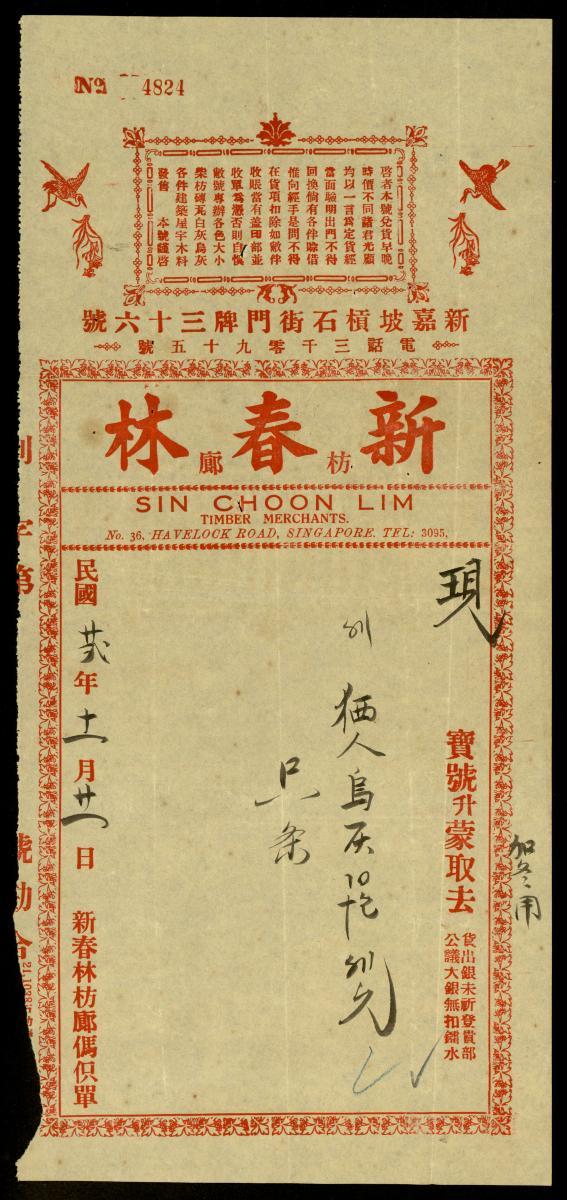 No. 4824
啓者本號兌貨早晚
時價不同諸君光顧
均以一言爲定貨經
當面驗明出門不得
回換倘有各伴賒借
惟向經手是問不得
在貨項扣除如敝伴
收賬當有蓋印部並
收單爲憑否則自悞
敝號專辦各色大小
梁枋磚瓦白灰烏灰
各件建築屋宇木料
發售 本號謹啓
新嘉坡槓石街門牌三十六號
電話三千零九十五號
新春林
枋廊
SIN CHOON LIM
TIMBER MERCHANTS.
No. 36, HAVELOCK ROAD, SINGAPORE. TEL: 3095,
現
寶號升蒙取去
貨出銀未祈登貴部
公議大銀無扣鐳水
加冬用
烏灰
民國廿弍年十一月廿一日 新春林枋廊傌伿單
字第
號勘合